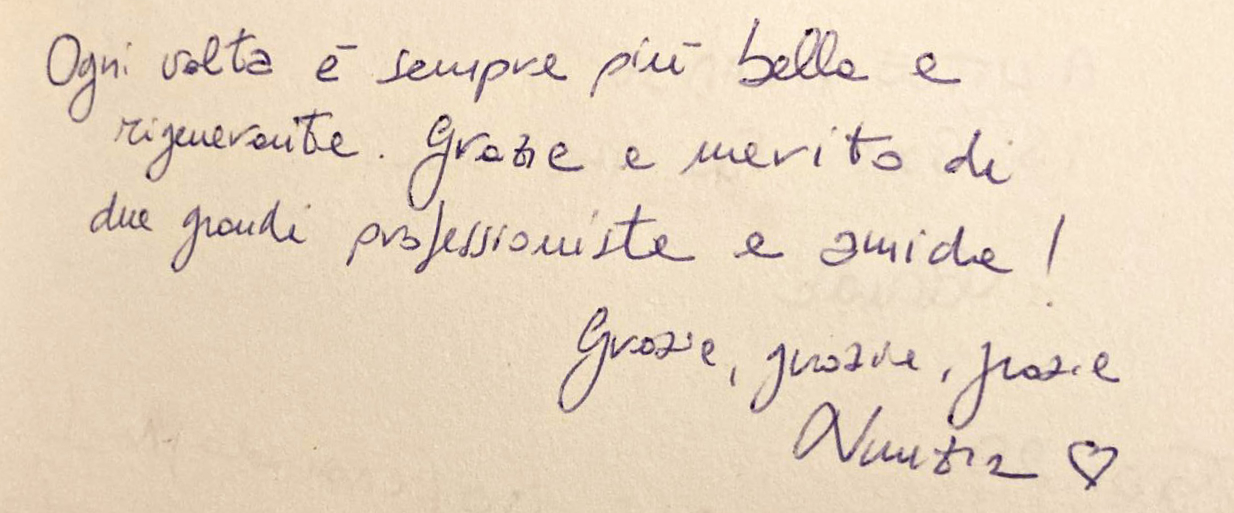 Ogni volta è sempre più bella e
rigenerante. Grazie e merito di
due grandi professioniste e amiche!
Grazie, grazie, grazie
Nunzia ♡